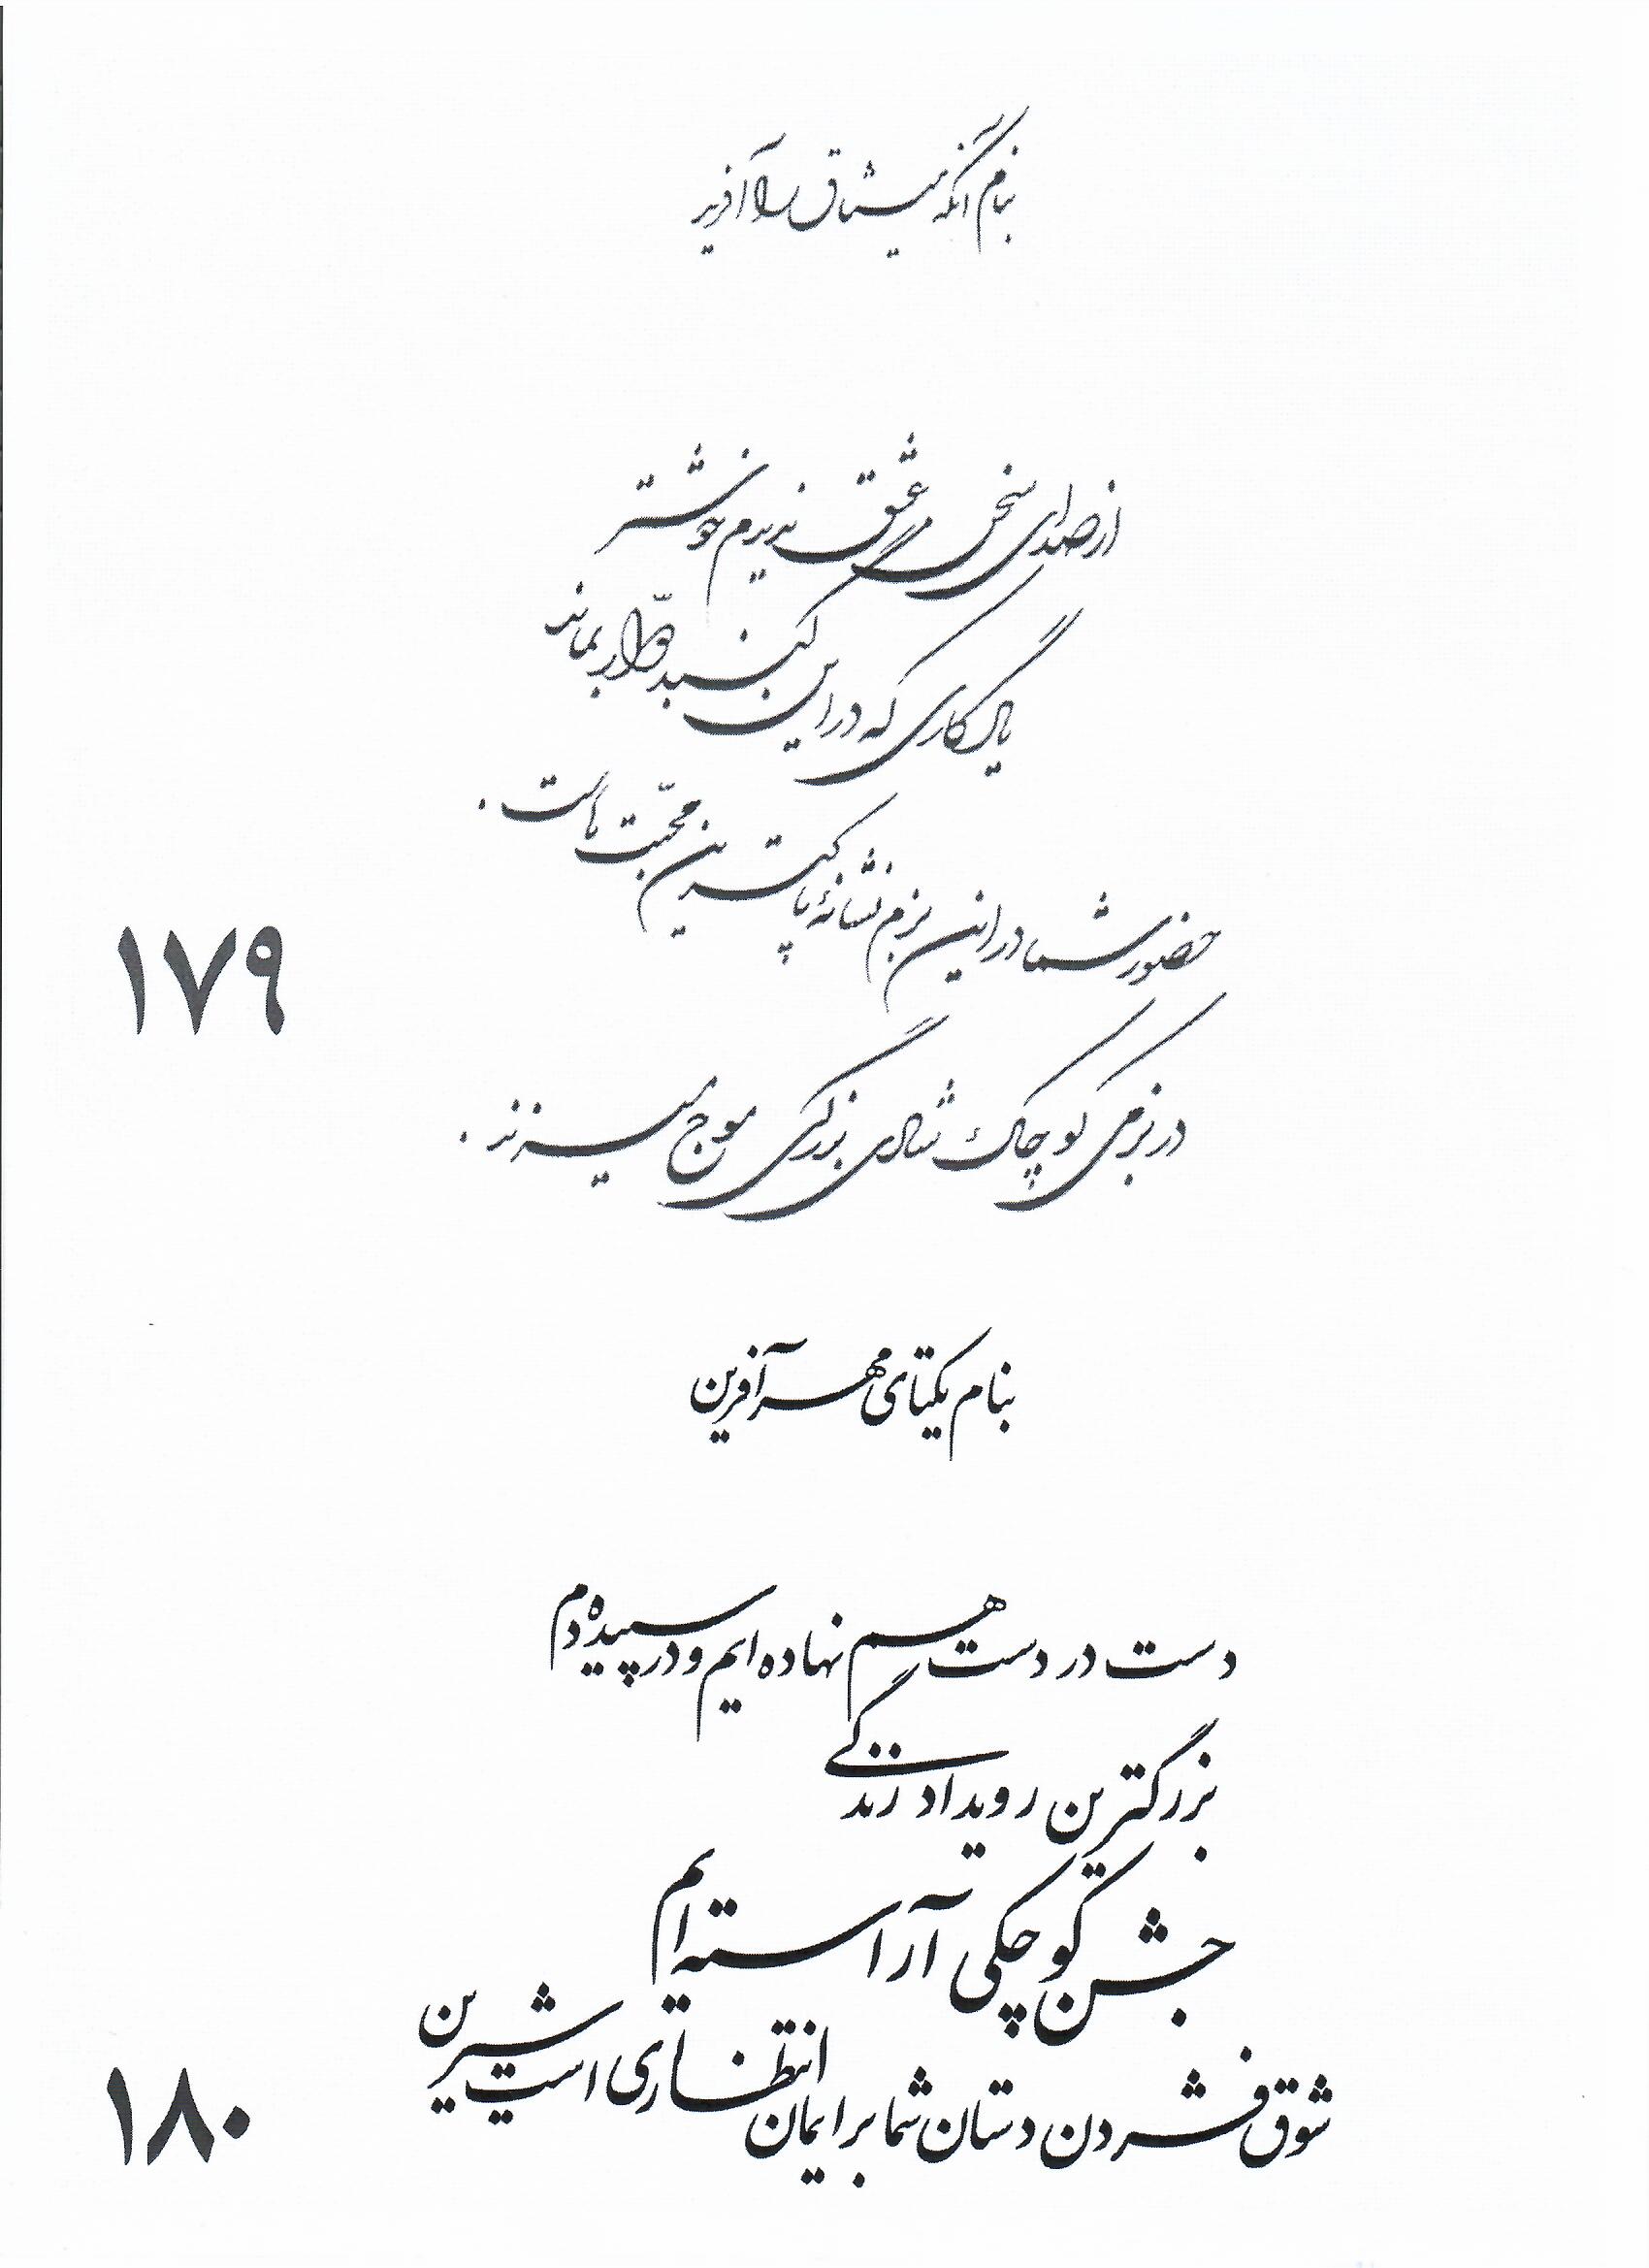 بنام آنکه میثاق را آفرید
از صدای سخن عشق ندیدم خوشتر
یادگاری که در این گنبد دوّار بماند
حضور شما در این بزم نشانهٔ پاکترین محبّت هاست .
۱۷۹
در بزمی کوچک شادی بزرگی موج میزند .
بنام یکتای مهر آفرین
دست در دست هم نهاده ایم و در سپیده دم
بزرگترین رویداد زندگی
جشن کوچکی آراسته ایم
شوق فشردن دستان شما برایمان انتظاری است شیرین
۱۸۰